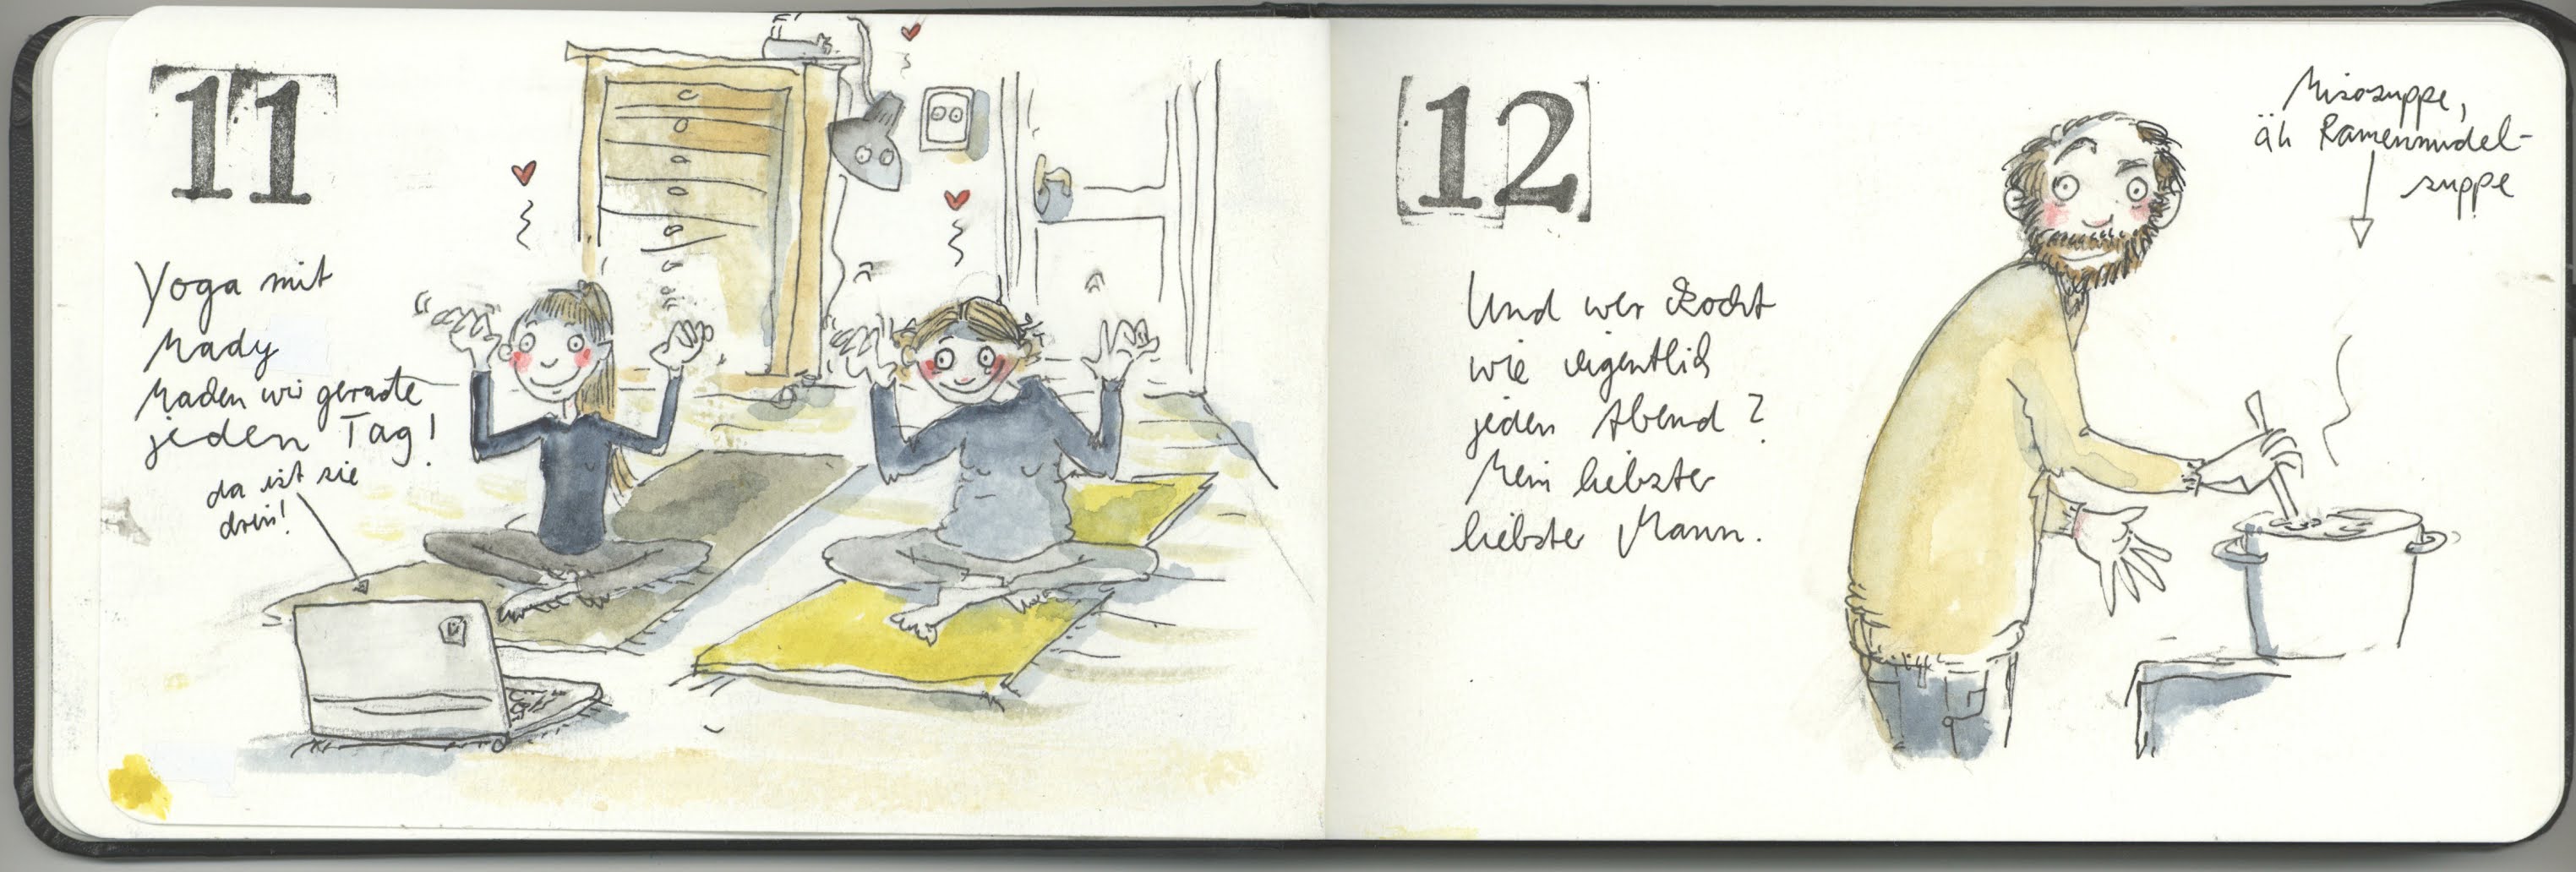 11
Yoga mit
Mady
Machen wir gerade
jeden Tag!
da ist sie
drin!
12
Und wer kocht
wie eigentlich
jeden Abend?
Mein liebster
liebster Mann.
Misosuppe,
äh Ramennudel-
suppe